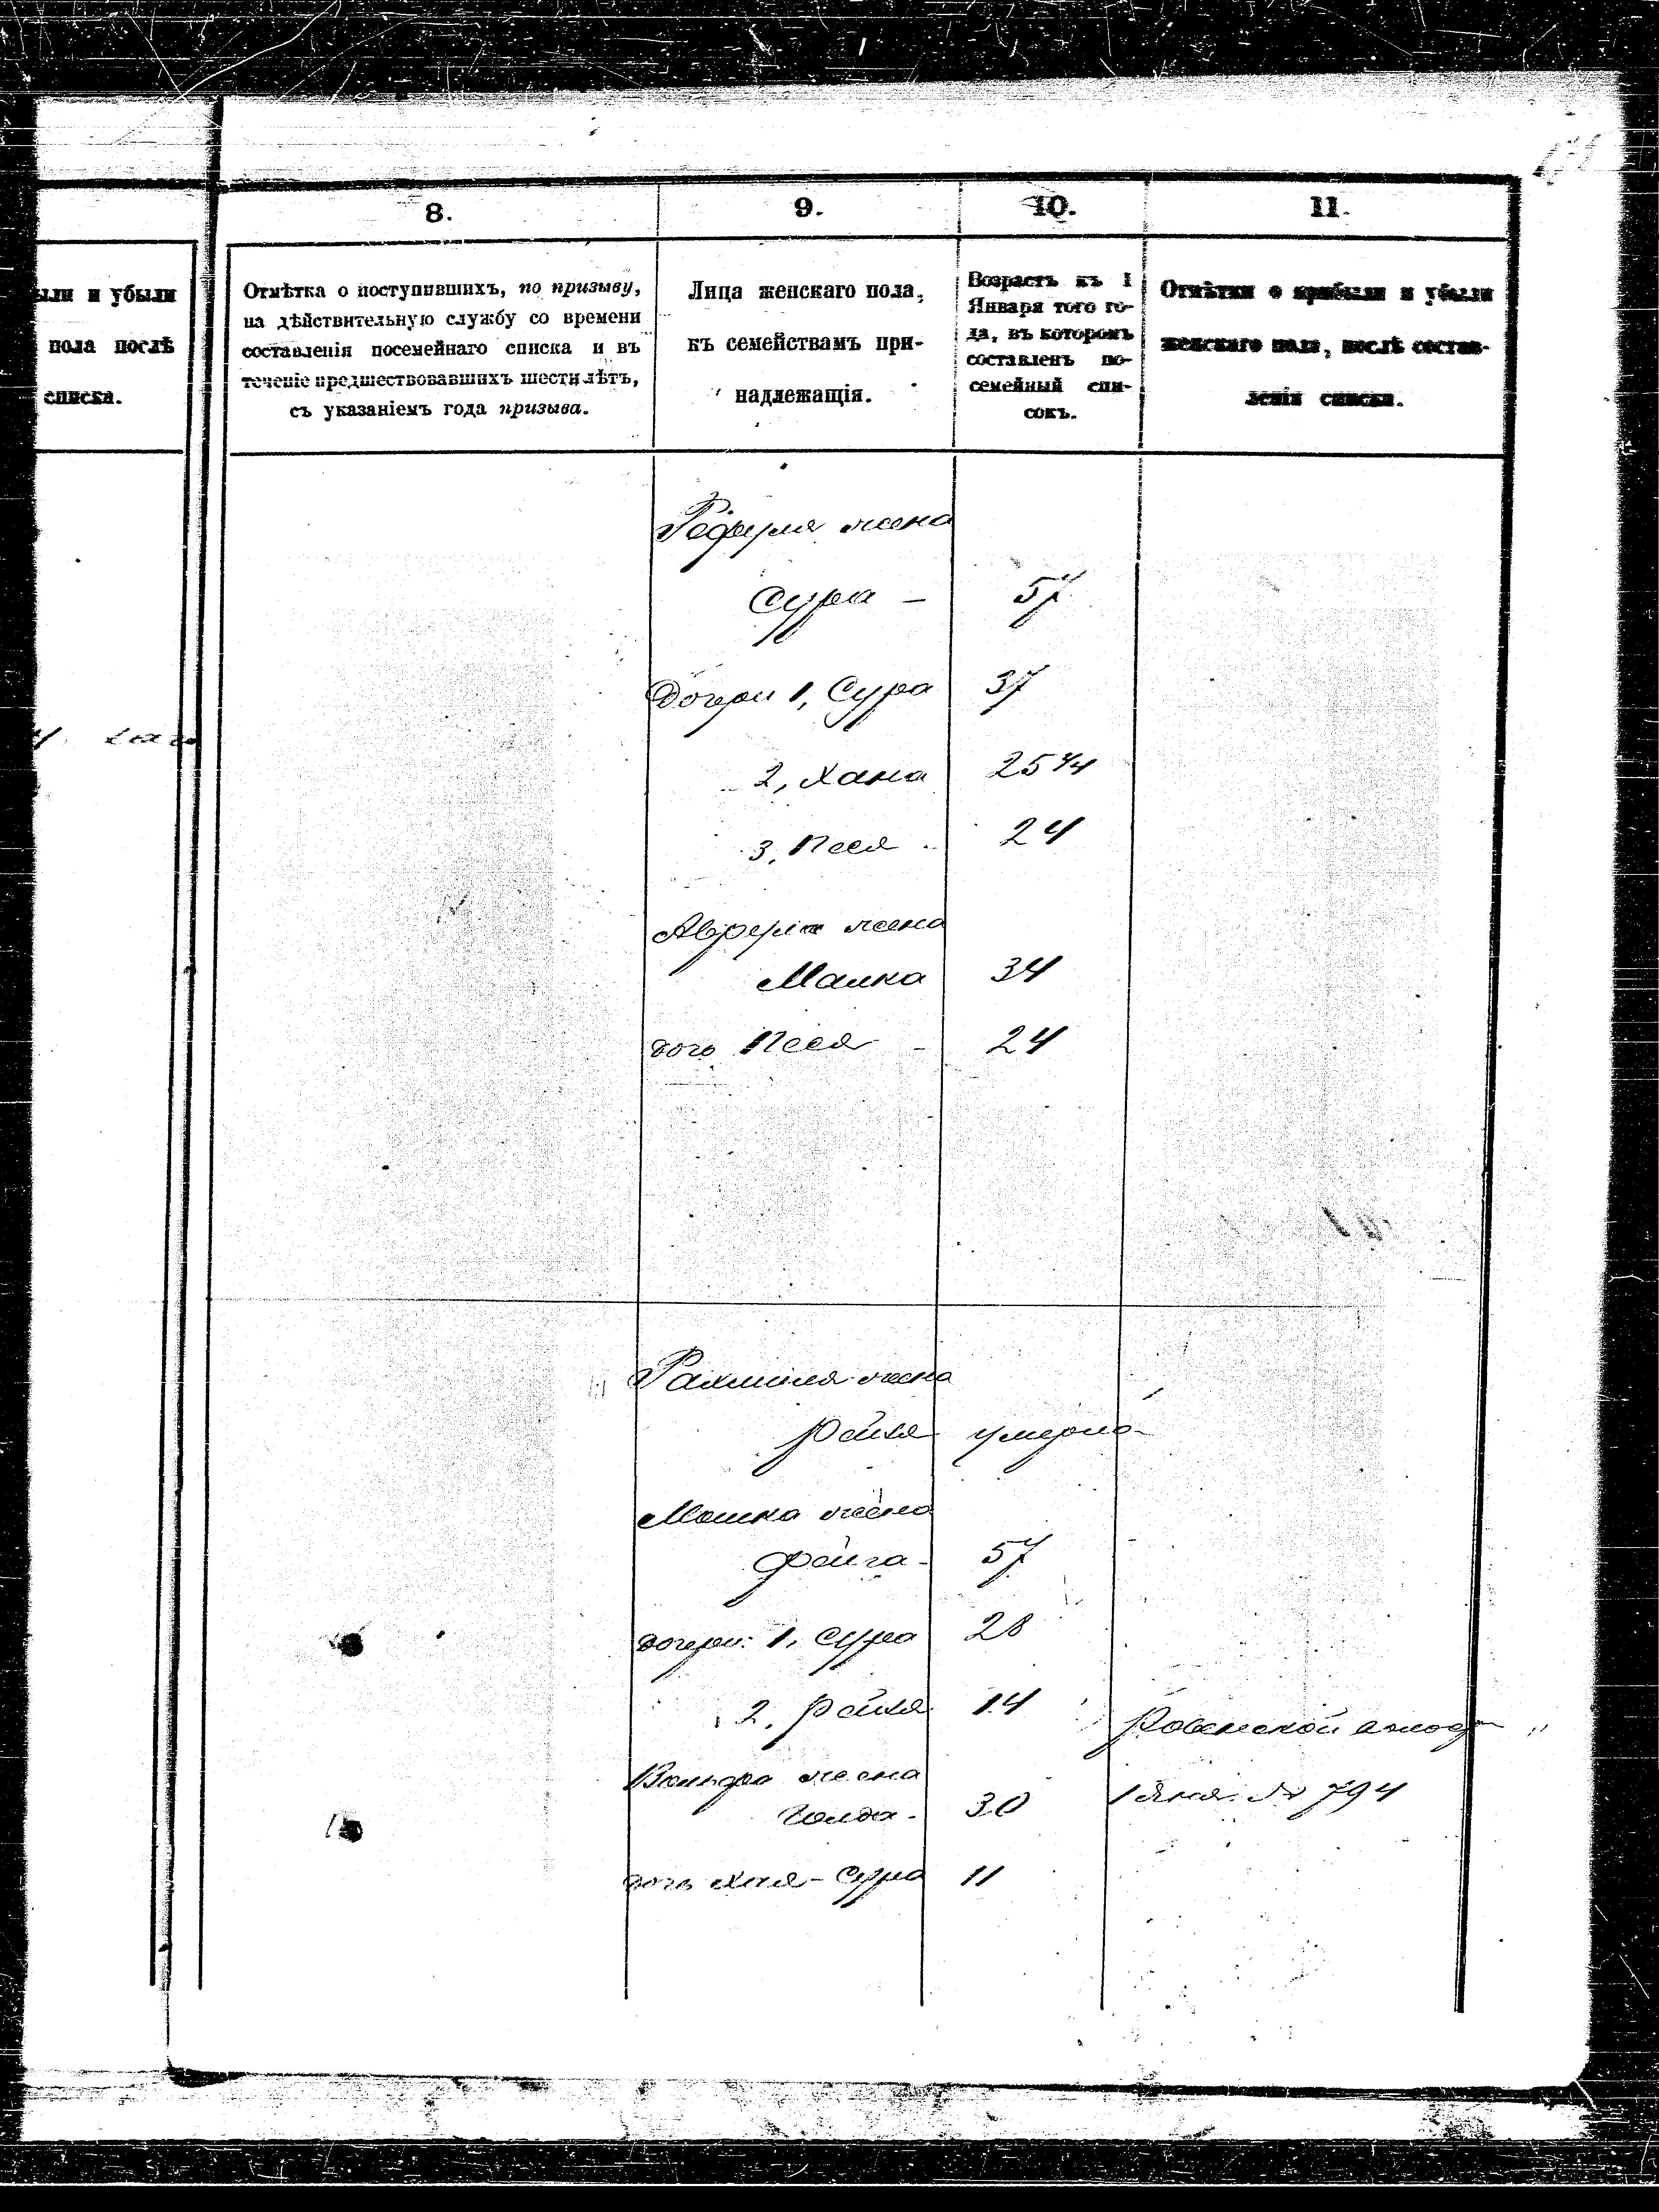 8.
9.
10.
11.
ыли и убыли
пола послѣ
списка.
Отмѣтка о поступившихъ, по призыву,
на дѣйствительную службу со времени
составленія посемейнаго списка и въ
теченіе предшествовавшихъ шести лѣтъ,
съ указаніемъ года призыва.
Лица женскаго пола,
къ семействамъ при-
надлежащія.
Возрастъ къ 1
Января того го-
да, въ которомъ
составленъ по-
семейный спи-
сокъ.
Отмѣтки о прибыли и убыли
женскаго пола, послѣ состав-
ленія списка.
жена
Сура - 57
Дочери 1, Сура 37
2, Хана 25 1/4
3, Песя 24
жена
Малка 34
дочь Песя - 24
Рахмиля жена
Рейзя умерла
Мошка жена
Фейга - 57
дочери: 1, Сура 28
2, Рейзя 14
Вольфа жена
Голда - 30
№ 794
дочь Хая-Сура 11